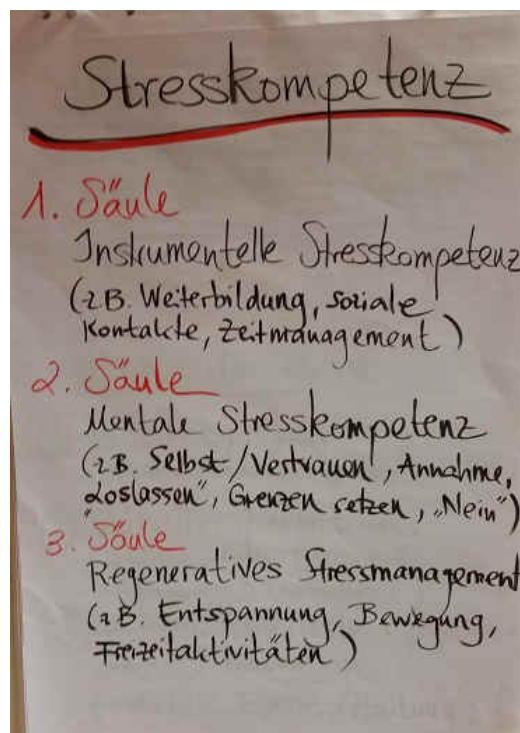 Stresskompetenz
1. Säule
Instrumentelle Stresskompetenz
(z.B. Weiterbildung, soziale
Kontakte, Zeitmanagement)
2. Säule
Mentale Stresskompetenz
(z.B. Selbst/Vertrauen, Annahme,
„Loslassen", Grenzen setzen, „Nein")
3. Säule
Regeneratives Stressmanagement
(z.B. Entspannung, Bewegung,
Freizeitaktivitäten)